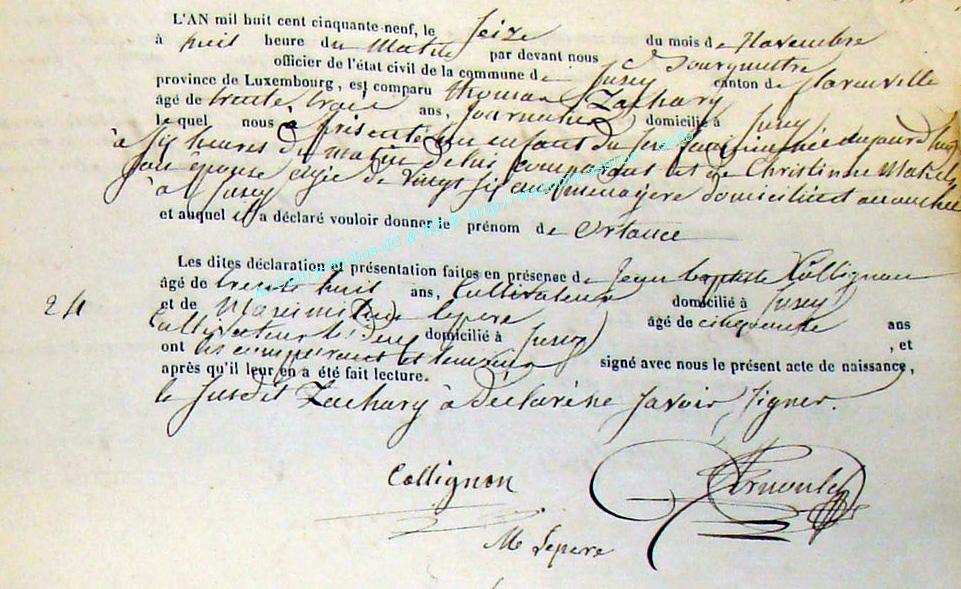 L'AN mil huit cent cinquante-neuf, le Seize du mois de Novembre
à huit heure du Matin par devant nous
officier de l'état civil de la commune de Jusey canton de
province de Luxembourg, est comparu thomas Zachary
âgé de trente trois ans, Journalier domicilié à Jusey
lequel nous à présenté un enfant du sexe
à six heures du matin de lui comparant et de Christinne
son épouse agée de vingt six ans menagère domiciliée
à Jusey
et auquel il a déclaré vouloir donner le prénom de Ortance
Les dites déclaration et présentation faites en présence de Jean baptiste Collignon
âgé de trente huit ans, Cultivateur domicilié à Jusey
24
et de Maximilien lepere âgé de cinquante ans
Cultivateur domicilié à Jusey , et
ont les comparant et temoins signé avec nous le présent acte de naissance,
après qu'il leur en a été fait lecture.
le Susdit Zachary à déclaré ne savoir signer.
Collignon
M lepere